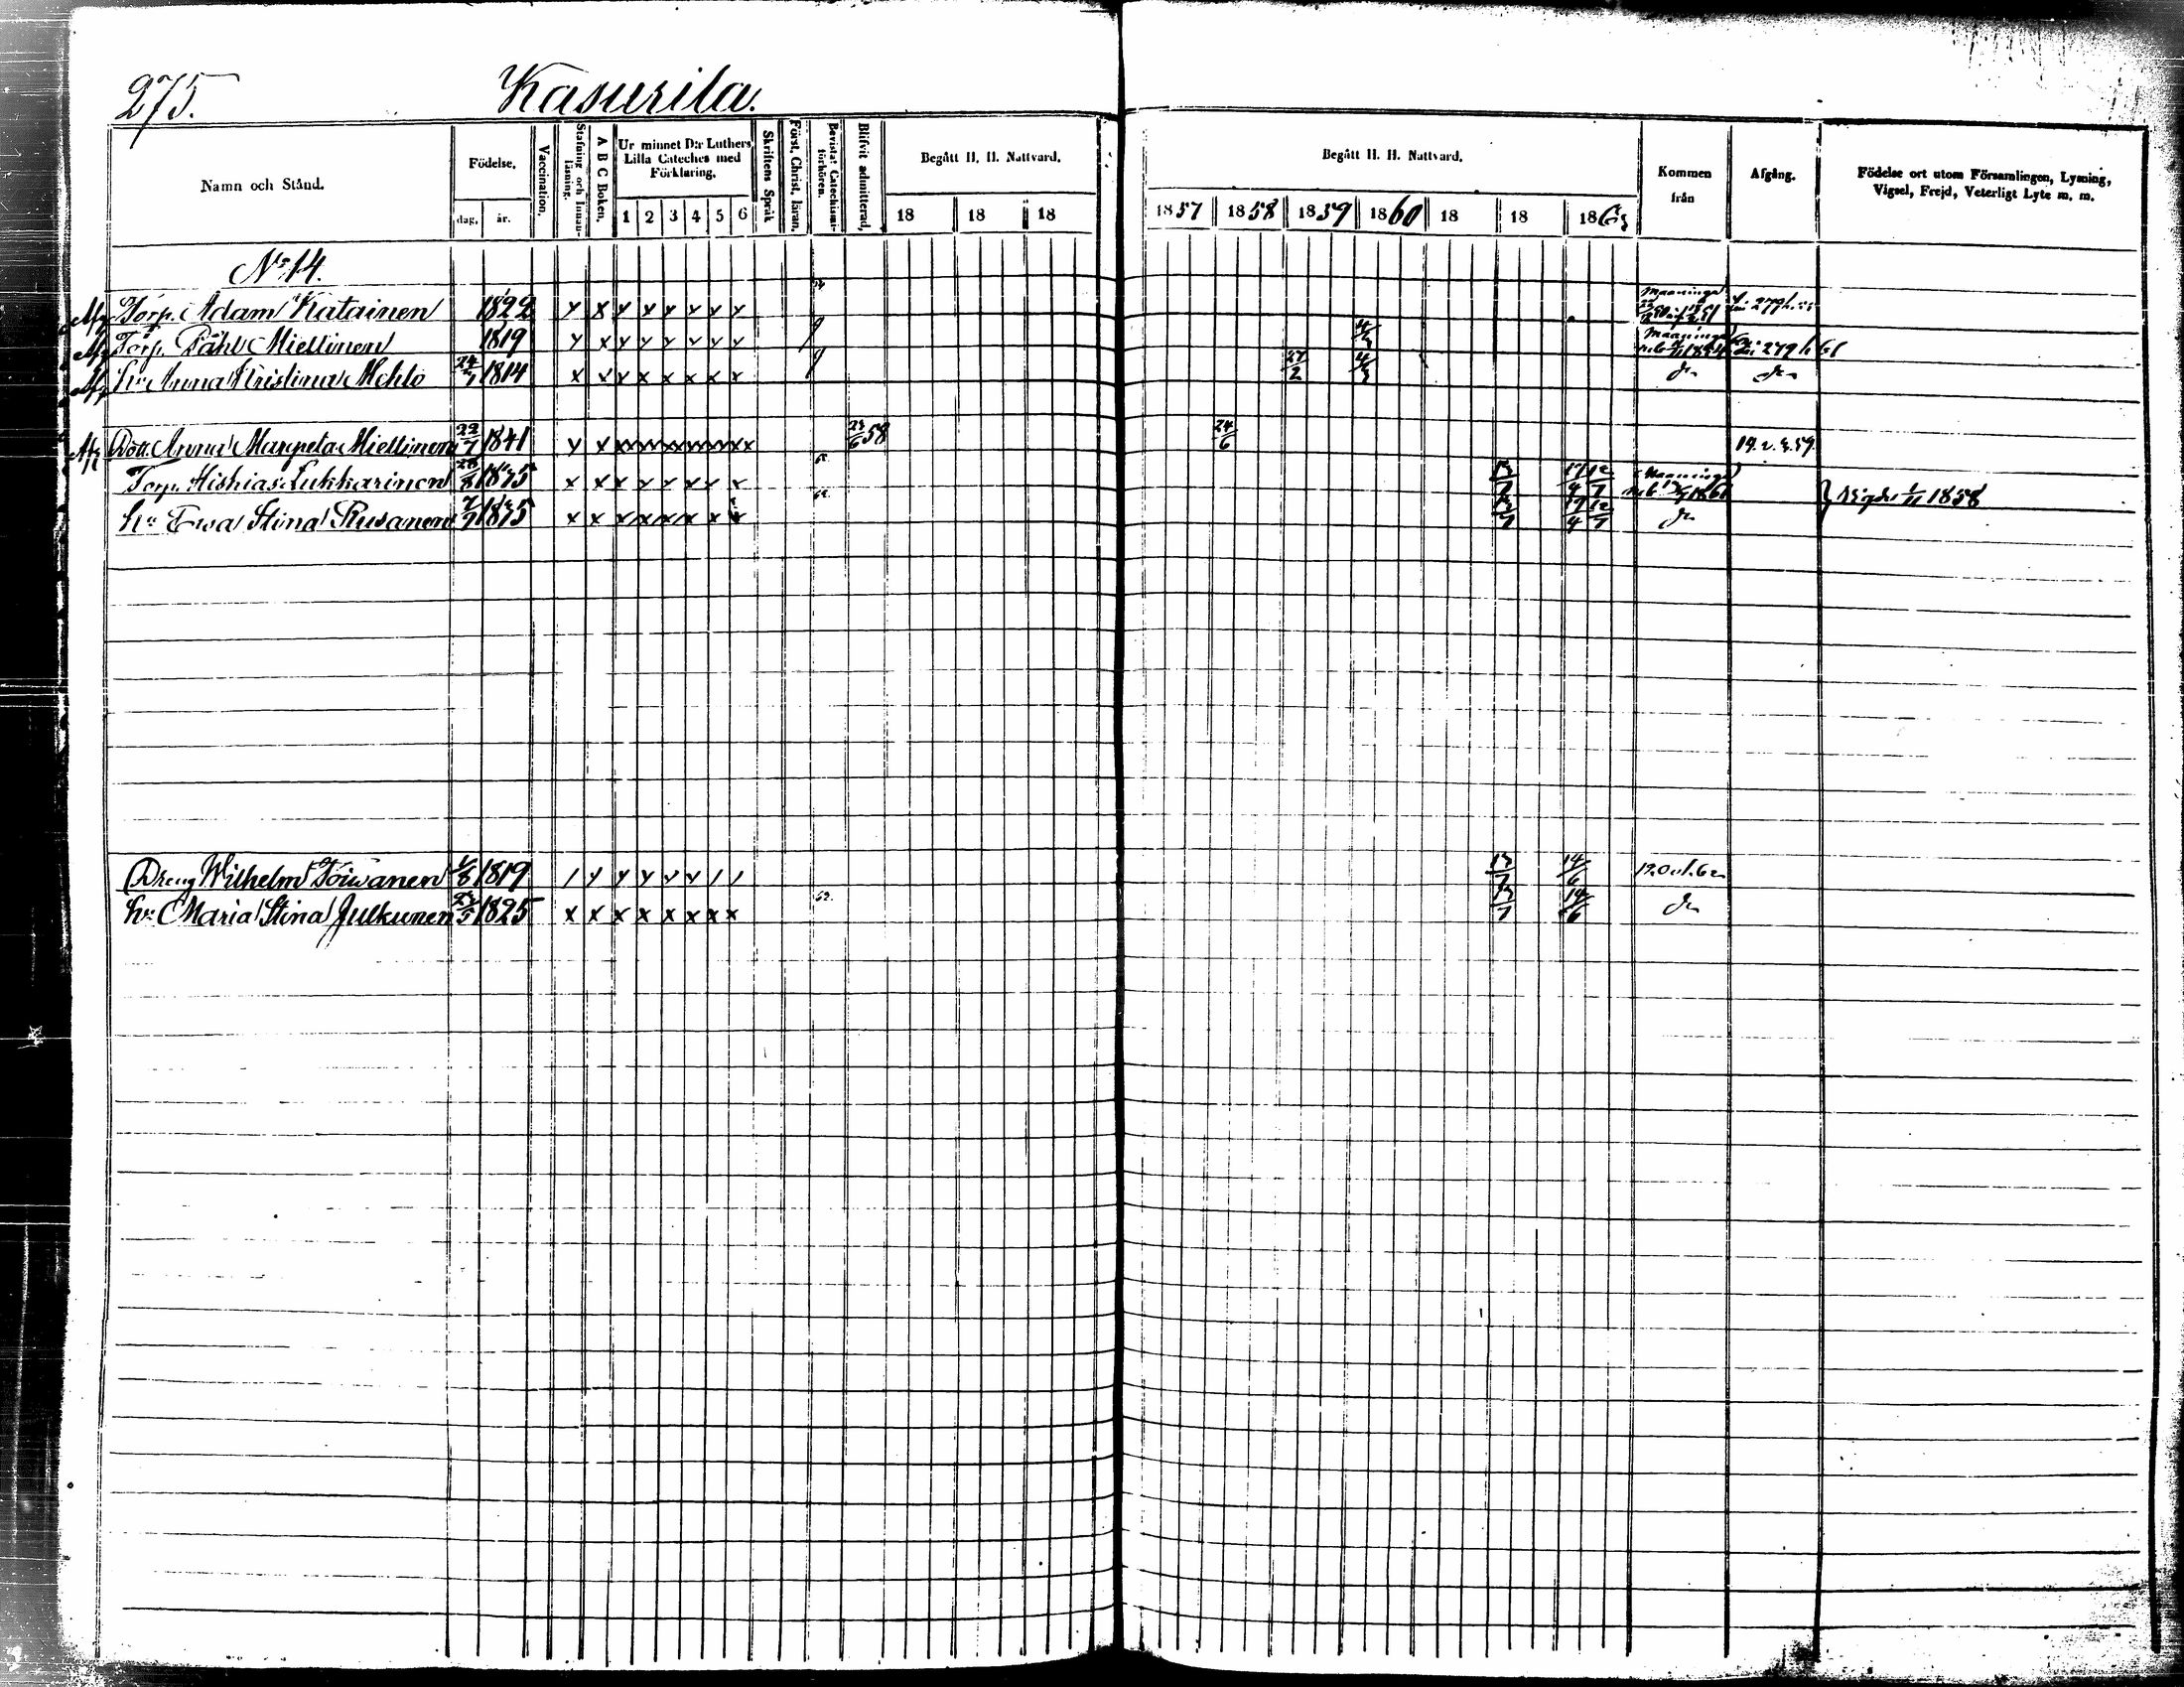 275.
Kasurila.
Namn och Stånd.
Födelse.
dag. år.
Vaccination.
Stafning och Innan-läsning.
A B C Boken.
Ur minnet D:r Luthers Lilla Cateches med Förklaring.
1 2 3 4 5 6
Skriftens Språk
Först. Christ. läran.
Bevistat Catechismi-förhören.
Blifvit admitterad.
Begått H. H. Nattvard.
18 18 18
Begått H. H. Nattvard.
1857 1858 1859 1860 18 18 186
Kommen från
Afgång.
Födelse ort utom Församlingen, Lysning, Vigsel, Frejd, Veterligt Lyte m. m.
No 14.
Torp. Adam Katainen 1822 x x x x x x x x Maaninga
Torp. Påhl Miettinen 1819 x x x x x x x x 4/3 Maaninga 279 h 61
Hu Anna Kristina Mehlo 24/7 1814 x x x x x x x x 27/2 4/3 do do
Dott. Anna Margeta Miettinen 22/7 1841 58 24/6 19.2.59
Torp. Hiskias Lukkarinen 1835 x x x x x x x Maaninga 1861
Hu Ewa Stina Rusanen 7/9 1835 x x x x x x x x 17/4 12/7 do
Vigde 1/11 1858
Dreng Wilhelm Toiwanen 1819 13/7 14/6 19. Oct. 62
Hu Maria Stina Julkunen 1825 x x x x x x x x 62. 13/7 14/6 do